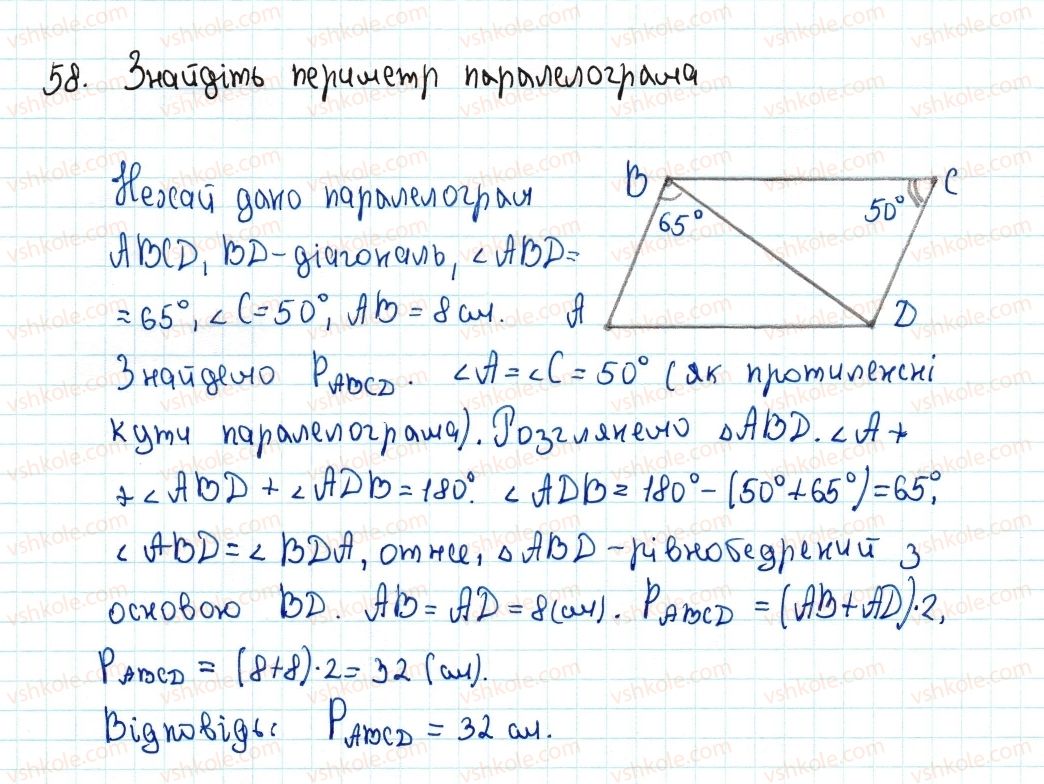 58. Знайдіть периметр паралелограма
Нехай дано паралелограм
ABCD, BD - діагональ, ∠ABD =
= 65°, ∠C = 50°, AB = 8 см.
B C
65° 50°
A D
Знайдемо P ABCD. ∠A = ∠C = 50° (як протилежні
кути паралелограма). Розглянемо △ABD. ∠A +
+ ∠ABD + ∠ADB = 180°. ∠ADB = 180° - (50° + 65°) = 65°,
∠ABD = ∠BDA, отже, △ABD - рівнобедрений з
основою BD. AB = AD = 8 (см). P ABCD = (AB + AD)·2,
P ABCD = (8 + 8)·2 = 32 (см).
Відповідь: P ABCD = 32 см.
vshkole.com